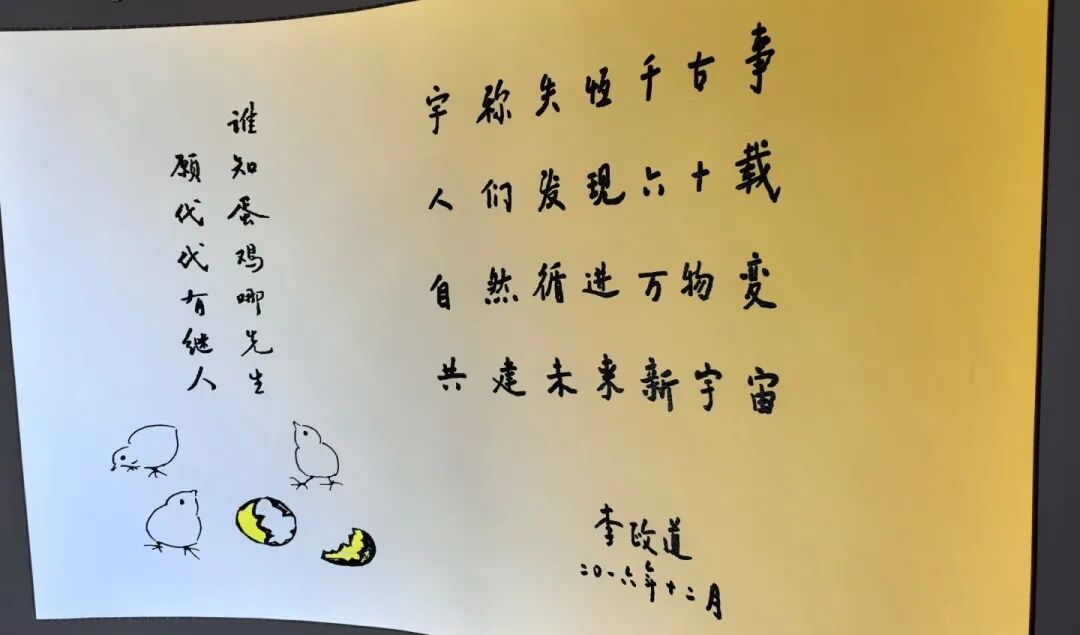 宇称失恒千古事
人们发现六十载
自然循进万物变
共建未来新宇宙
李政道
二〇一六年十二月
谁知蛋鸡哪先生
愿代代有继人